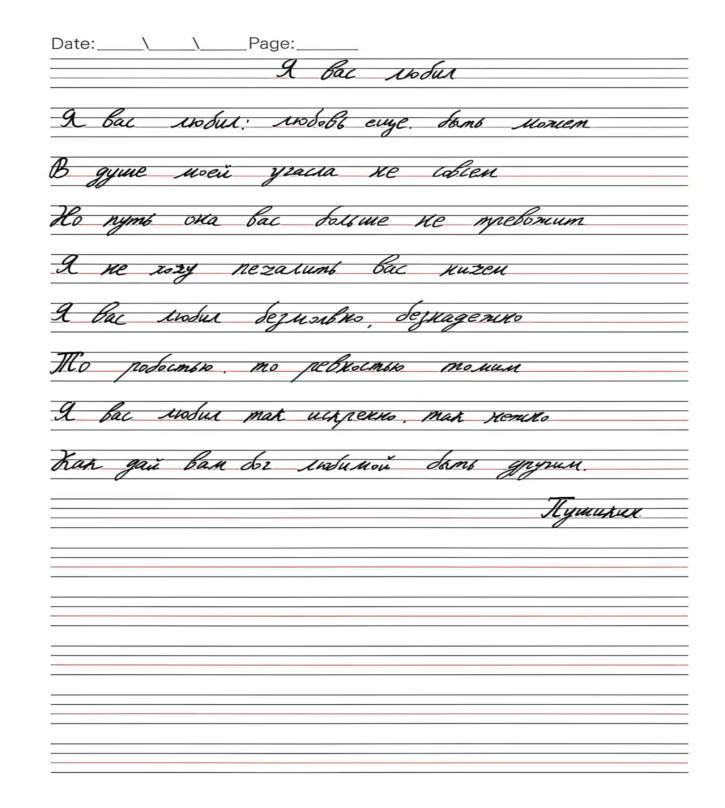 Date:_____\_____\_____Page:_______
Я вас любил
Я вас любил: любовь еще. быть может
В душе моей угасла не совсем
Но путь она вас больше не тревожит
Я не хочу печалить вас ничем
Я вас любил безмолвно, безнадежно
То робостью. то ревностью томим
Я вас любил так искренно. так нежно
Как дай вам бог любимой быть другим.
Пушкин